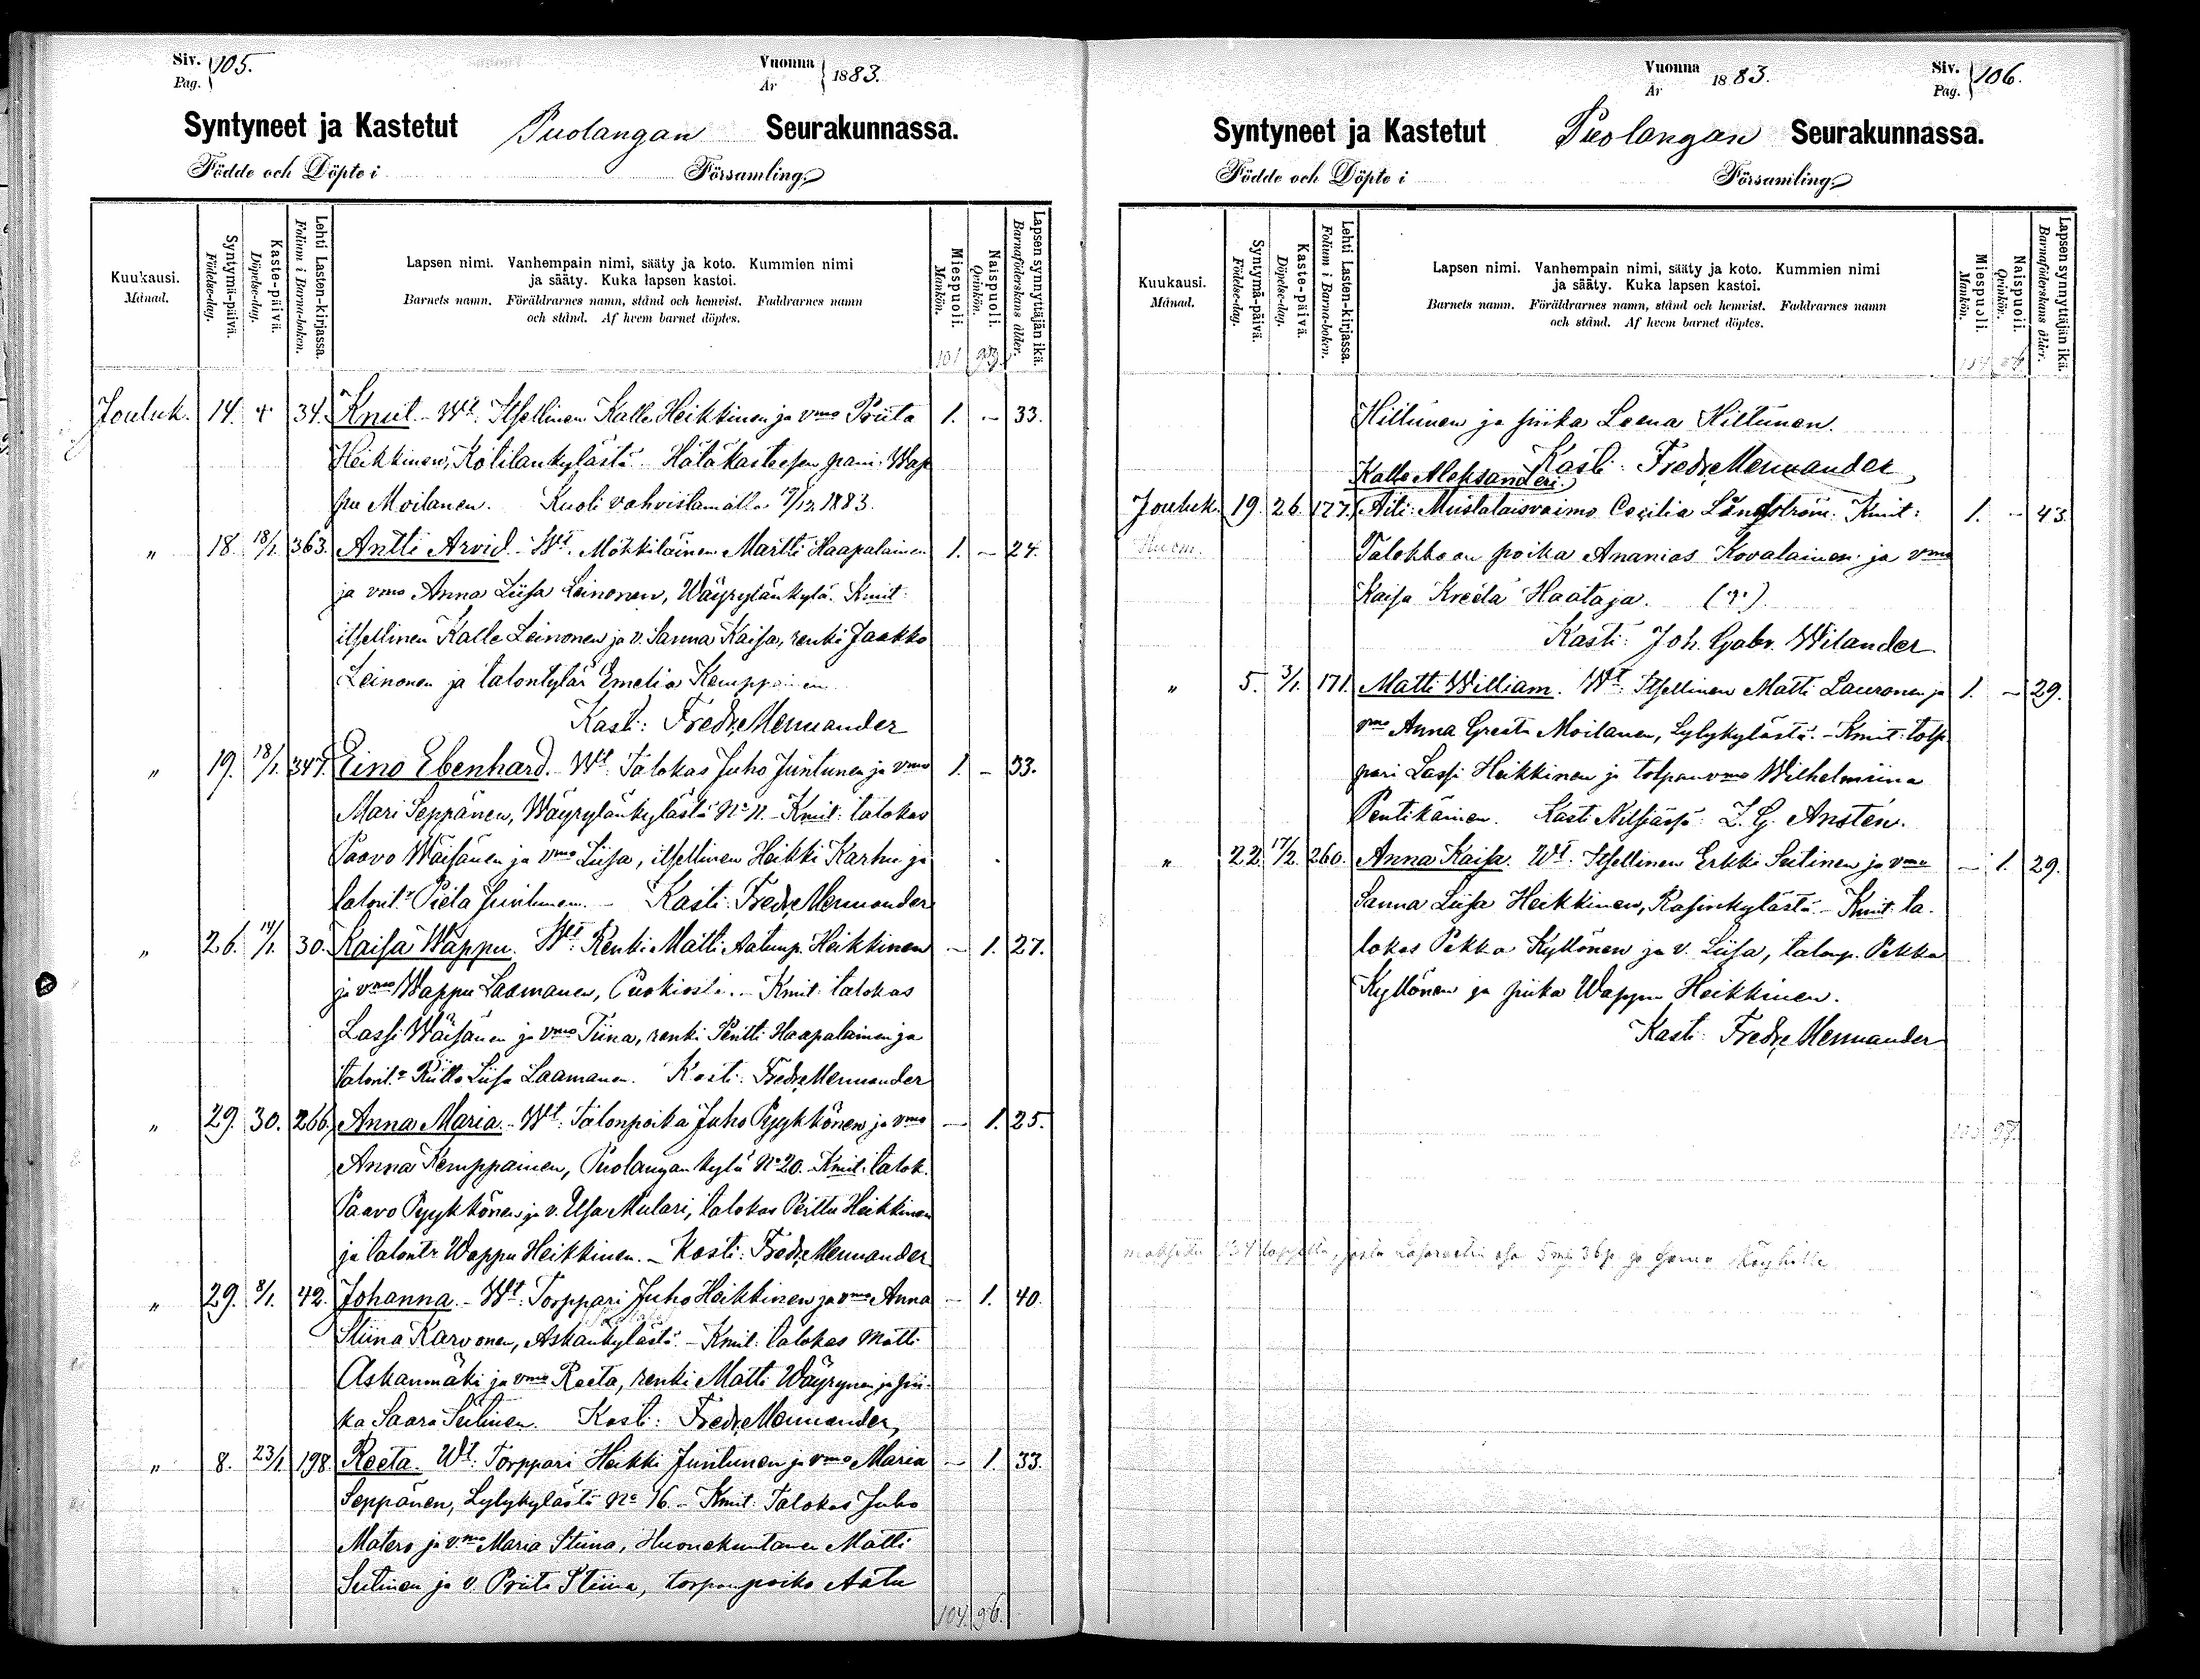 Siv. 105.
Pag.
Vuonna 1883.
År
Syntyneet ja Kastetut Puolangan Seurakunnassa.
Födde och Döpte i Församling.
Kuukausi.
Månad.
Syntymä-päivä.
Födelse-dag.
Kaste-päivä.
Döpelse-dag.
Lehti Lasten-kirjassa.
Folium i Barna-boken.
Lapsen nimi. Vanhempain nimi, sääty ja koto. Kummien nimi
ja sääty. Kuka lapsen kastoi.
Barnets namn. Föräldrarnes namn, stånd och hemvist. Faddrarnes namn
och stånd. Af hvem barnet döptes.
Miespuoli.
Mankön.
Naispuoli.
Qvinkön.
Lapsen synnyttäjän ikä.
Barnaföderskans ålder.
101 93
Jouluk. 14. + 34. Knut - Wt: Itsellinen Kalle Heikkinen ja vmo Priita 1. - 33.
Heikkinen, Kotilankylästä. Hätäkasteesen pani: Wap
pu Moilanen. Kuoli vahvistamatta 17/12 1883.
" 18. 18/1. 363. Antti Arvid - Wt: Mökkiläinen Martti Haapalainen 1. - 24.
ja vmo Anna Liisa Leinonen, Wäyrylänkylä. Kmit:
itsellinen Kalle Leinonen ja v. Sanna Kaisa, renki Jaakko
Leinonen ja talontytär Emelia Kemppainen
Kasti: Fredr. Mennander
" 19. 18/1. 347. Eino Ebenhard. Wt: Talokas Juho Juntunen ja vmo 1. - 33.
Mari Seppänen, Wäyrylänkylästä No 11. - Kmit: talokas
Paavo Wäisänen ja vmo Liisa, itsellinen Heikki Karhu ja
talont:r Pieta Juntunen. - Kasti: Fredr. Mennander
" 26. 14/1. 30. Kaisa Wappu. Wt: Renki Matti Aatunp. Heikkinen - 1. 27.
ja vmo Wappu Laamanen, Puokiosta. - Kmit: talokas
Lassi Wäisänen ja vmo Tiina, renki Pentti Haapalainen ja
talont:r Riitta Liisa Laamanen. Kasti: Fredr. Mennander
" 29. 30. 266. Anna Maria. - Wt: Talonpoika Juho Pyykkönen ja vmo - 1. 25.
Anna Kemppainen, Puolangankylä No 20. Kmit: talok.
Paavo Pyykkönen ja v. Elsa Mulari, talokas Perttu Heikkinen
ja talontr Wappu Heikkinen. - Kasti: Fredr. Mennander
" 29. 8/1. 42. Johanna. - Wt: Torppari Juho Heikkinen ja vmo Anna - 1. 40.
Stiina Karvonen, Askankylästä. - Kmit: talokas Matti
Askanmäki ja vmo Reeta, renki Matti Wäyrynen ja pii-
ka Saara Seitinen. Kasti: Fredr. Mennander
" 8. 23/1. 198 Reeta. Wt: Torppari Heikki Juntunen ja vmo Maria - 1. 33.
Seppänen, Lylykylästä No 16. - Kmit: Talokas Juho
Matero ja vmo Maria Stiina, Huonekuntamies Matti
Seitinen ja v. Priita Stiina, torpanpoika Aatu
104. 96.
Vuonna 1883.
År
Siv. 106.
Pag.
Syntyneet ja Kastetut Puolangan Seurakunnassa.
Födde och Döpte i Församling.
Kuukausi.
Månad.
Syntymä-päivä.
Födelse-dag.
Kaste-päivä.
Döpelse-dag.
Lehti Lasten-kirjassa.
Folium i Barna-boken.
Lapsen nimi. Vanhempain nimi, sääty ja koto. Kummien nimi
ja sääty. Kuka lapsen kastoi.
Barnets namn. Föräldrarnes namn, stånd och hemvist. Faddrarnes namn
och stånd. Af hvem barnet döptes.
Miespuoli.
Mankön.
Naispuoli.
Qvinkön.
Lapsen synnyttäjän ikä.
Barnaföderskans ålder.
Hiltunen ja piika Leena Hiltunen.
Kasti: Fredr. Mennander
Kalle Aleksanderi.
Jouluk. 19. 26. 177. Äiti: Mustalaisvaimo Cecilia Långström. Kmit: 1. - 43.
Huom. Talokkaan poika Ananias Kovalainen ja vmo
Kaisa Kreeta Haataja.
Kasti: Joh. Gabr. Wilander
" 5. 3/1. 171. Matti William. Wt: Itsellinen Matti Lauronen ja 1. - 29.
vmo Anna Greeta Moilanen, Lylykylästä. - Kmit: tolp
pari Lassi Heikkinen ja tolpanvmo Wilhelmiina
Pentikäinen. Kasti Nilsiässä: Z. G. Anstén.
" 22. 17/2. 260. Anna Kaisa. Wt: Itsellinen Erkki Seitinen ja vmo - 1. 29.
Sanna Liisa Heikkinen, Rasinkylästä. - Kmit: ta-
lokas Pekka Kyllönen ja v. Liisa, talonp. Pekka
Kyllönen ja piika Wappu Heikkinen.
Kasti: Fredr. Mennander
97.